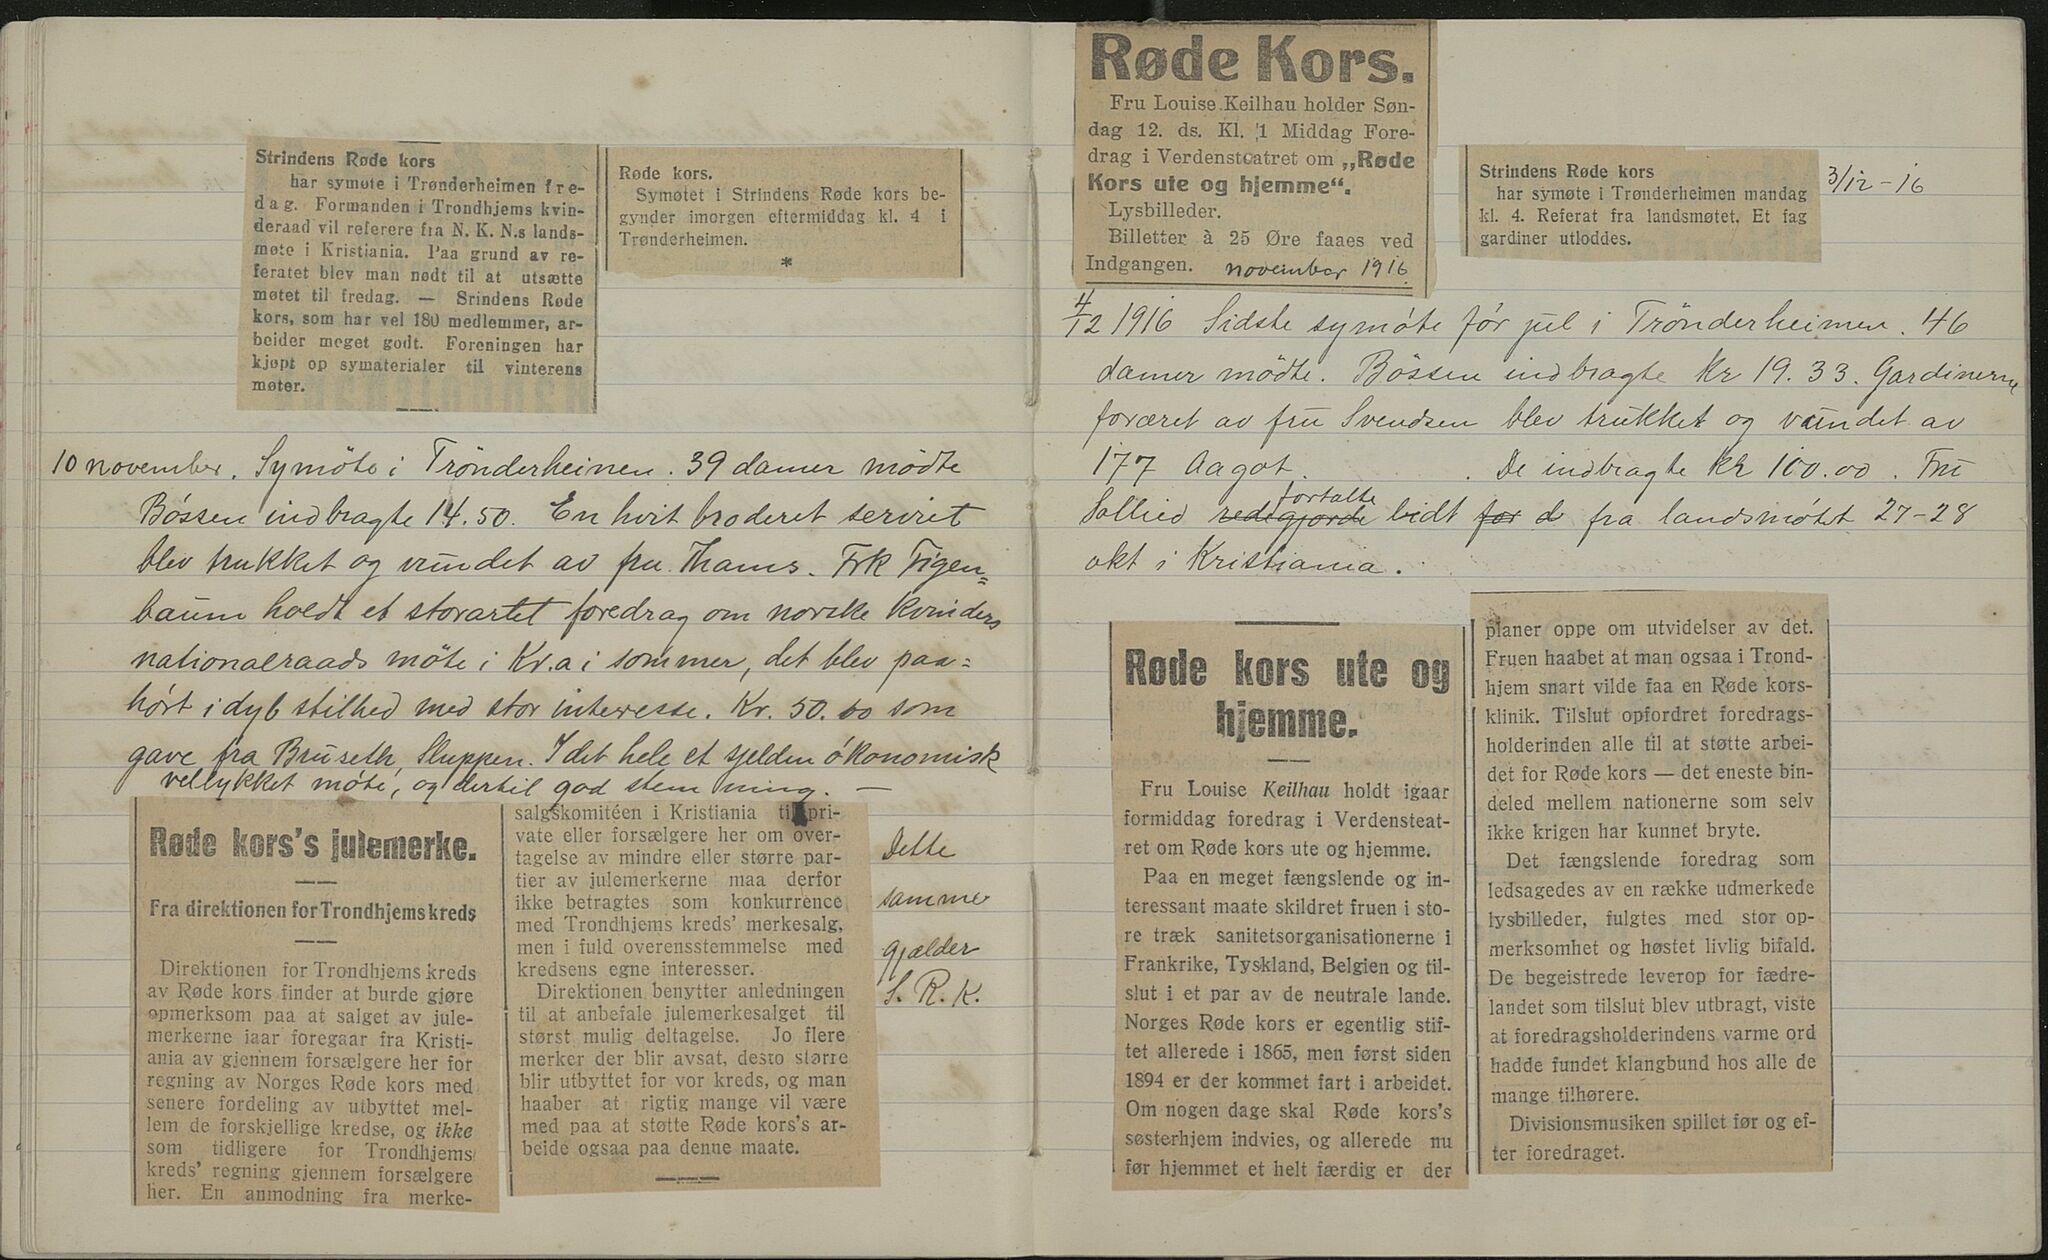 Strindens Røde kors
har symøte i Trønderheimen fre-
dag. Formanden i Trondhjems kvin-
deraad vil referere fra N. K. N.s lands-
møte i Kristiania. Paa grund av re-
feratet blev man nødt til at utsætte
møtet til fredag. — Srindens Røde
kors, som har vel 180 medlemmer, ar-
beider meget godt. Foreningen har
kjøpt op symaterialer til vinterens
møter.
Røde kors.
Symøtet i Strindens Røde kors be-
gynder imorgen eftermiddag kl. 4 i
Trønderheimen.
*
10 november. Symöte i Trönderheimen. 39 damer mödte
Bössen indbragte 14.50. En hvit broderet serviet
blev trukket og vundet av fru Thams. Frk Figen=
baum holdt et storartet foredrag om norske kvinders
nationalraads möte i Kr.a i sommer, det blev paa=
hört i dyb stilhed med stor interesse. Kr. 50.00 som
gave fra Bruseth, Sluppen. I det hele et sjelden ökonomisk
vellykket möte, og dertil god stemning. —
Røde kors's julemerke.
Fra direktionen for Trondhjems kreds
Direktionen for Trondhjems kreds
av Røde kors finder at burde gjøre
opmerksom paa at salget av jule-
merkerne iaar foregaar fra Kristi-
ania av gjennem forsælgere her for
regning av Norges Røde kors med
senere fordeling av utbyttet mel-
lem de forskjellige kredse, og ikke
som tidligere for Trondhjems
kreds' regning gjennem forsælgere
her. En anmodning fra merke-
salgskomitéen i Kristiania til pri-
vate eller forsælgere her om over-
tagelse av mindre eller større par-
tier av julemerkerne maa derfor
ikke betragtes som konkurrence
med Trondhjems kreds' merkesalg,
men i fuld overensstemmelse med
kredsens egne interesser.
Direktionen benytter anledningen
til at anbefale julemerkesalget til
størst mulig deltagelse. Jo flere
merker der blir avsat, desto større
blir utbyttet for vor kreds, og man
haaber at rigtig mange vil være
med paa at støtte Røde kors's ar-
beide ogsaa paa denne maate.
Dette
samme
gjælder
S. R. K.
Røde Kors.
Fru Louise Keilhau holder Søn-
dag 12. ds. Kl. 1 Middag Fore-
drag i Verdensteatret om „Røde
Kors ute og hjemme“.
Lysbilleder.
Billetter à 25 Øre faaes ved
Indgangen. november 1916
Strindens Røde kors
har symøte i Trønderheimen mandag
kl. 4. Referat fra landsmøtet. Et fag
gardiner utloddes.
3/12-16
4/12 1916 Sidste symöte för jul i Trönderheimen. 46
damer mödte. Bössen indbragte Kr 19.33. Gardinerne
foræret av fru Svendsen blev trukket og vundet av
177 Aagot. . De indbragte Kr 100.00. Fru
fortalte
Sollied redegjorde lidt for d fra landsmötet 27-28
okt i Kristiania.
Røde kors ute og
hjemme.
Fru Louise Keilhau holdt igaar
formiddag foredrag i Verdensteat-
ret om Røde kors ute og hjemme.
Paa en meget fængslende og in-
teressant maate skildret fruen i sto-
re træk sanitetsorganisationerne i
Frankrike, Tyskland, Belgien og til-
slut i et par av de neutrale lande.
Norges Røde kors er egentlig stif-
tet allerede i 1865, men først siden
1894 er der kommet fart i arbeidet.
Om nogen dage skal Røde kors's
søsterhjem indvies, og allerede nu
før hjemmet et helt færdig er der
planer oppe om utvidelser av det.
Fruen haabet at man ogsaa i Trond-
hjem snart vilde faa en Røde kors-
klinik. Tilslut opfordret foredrags-
holderinden alle til at støtte arbei-
det for Røde kors — det eneste bin-
deled mellem nationerne som selv
ikke krigen har kunnet bryte.
Det fængslende foredrag som
ledsagedes av en række udmerkede
lysbilleder, fulgtes med stor op-
merksomhet og høstet livlig bifald.
De begeistrede leverop for fædre-
landet som tilslut blev utbragt, viste
at foredragsholderindens varme ord
hadde fundet klangbund hos alle de
mange tilhørere.
Divisionsmusiken spillet før og ef-
ter foredraget.